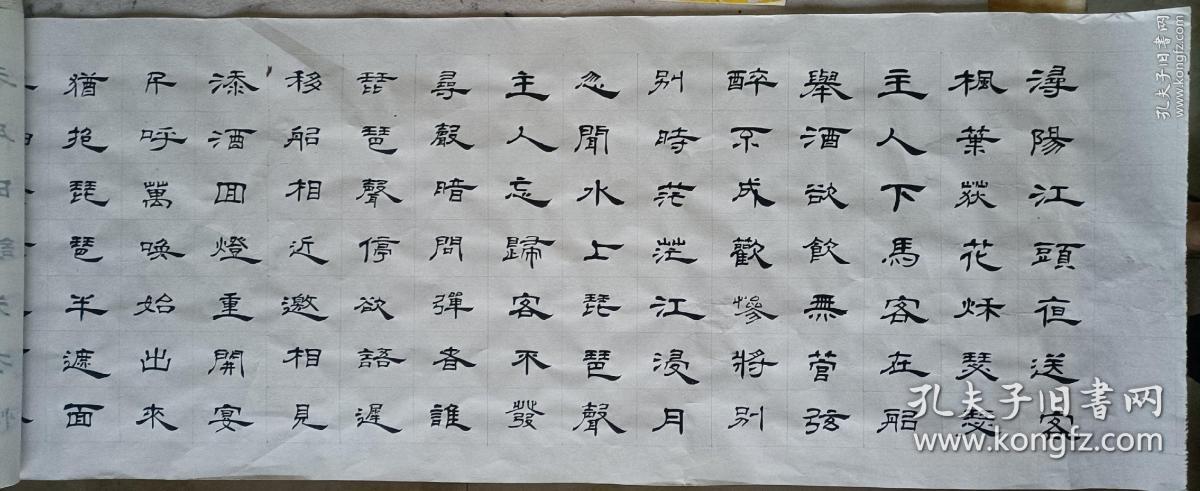 潯陽江頭夜送客
楓葉荻花秋瑟瑟
主人下馬客在船
舉酒欲飲無管弦
醉不成歡慘將別
別時茫茫江浸月
忽聞水上琵琶聲
主人忘歸客不發
尋聲暗問彈者誰
琵琶聲停欲語遲
移船相近邀相見
添酒回燈重開宴
千呼萬喚始出來
猶抱琵琶半遮面
孔夫子旧书网
www.kongfz.com
孔夫子旧书网
www.kongfz.com